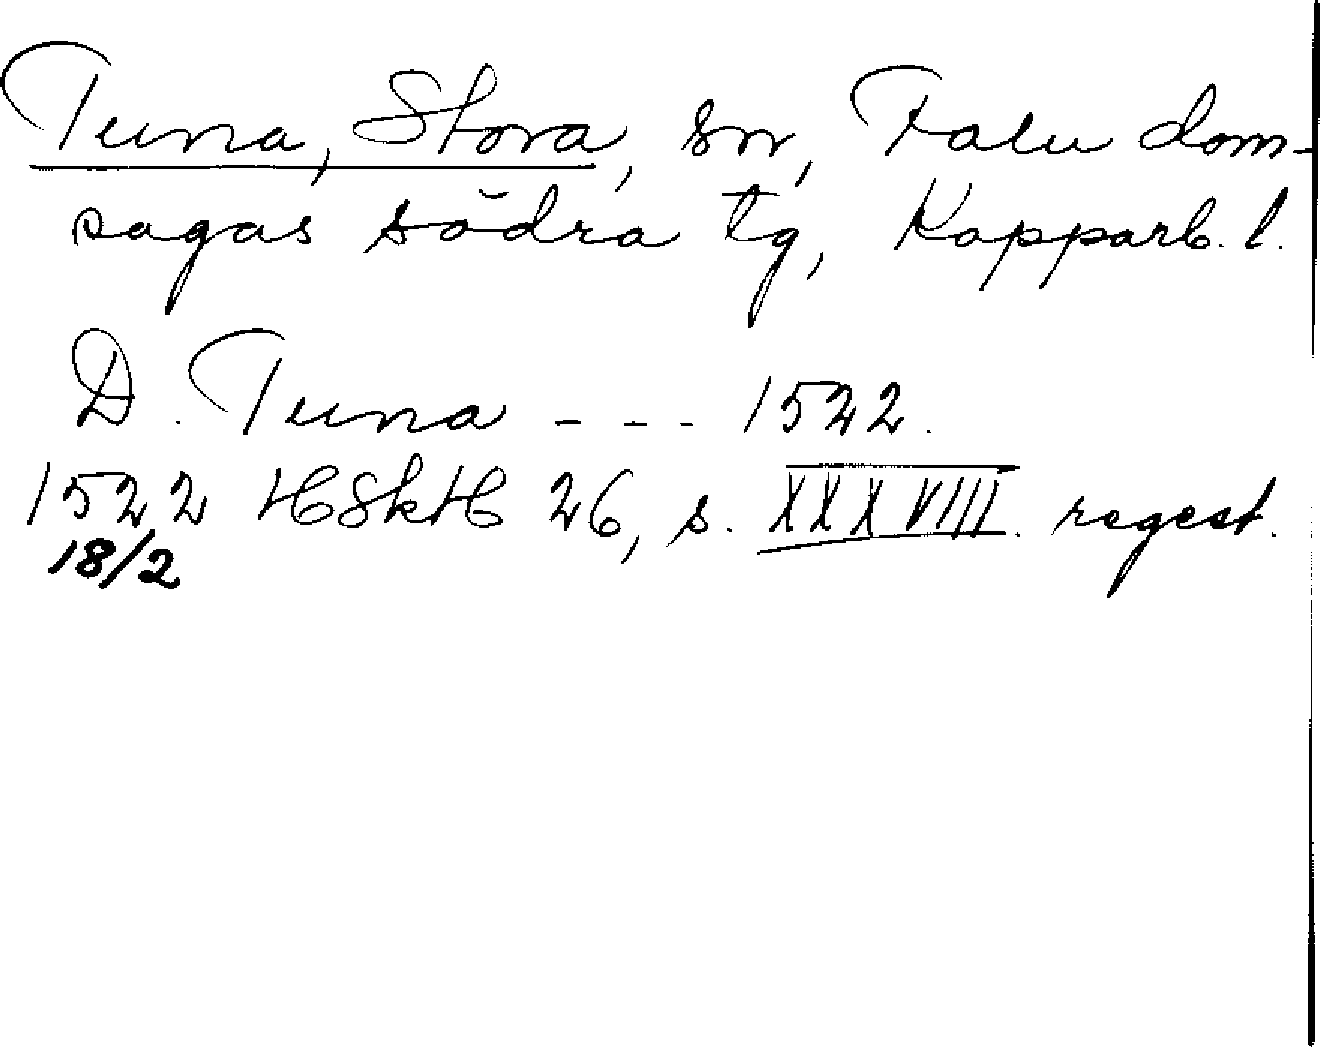 Tuna, Stora, sn, Falu dom-
sagas södra tg, Kopparb. l.
D. Tuna - - - 1522.
1522 HSkH 26, s. XXXVIII. regest.
18/2